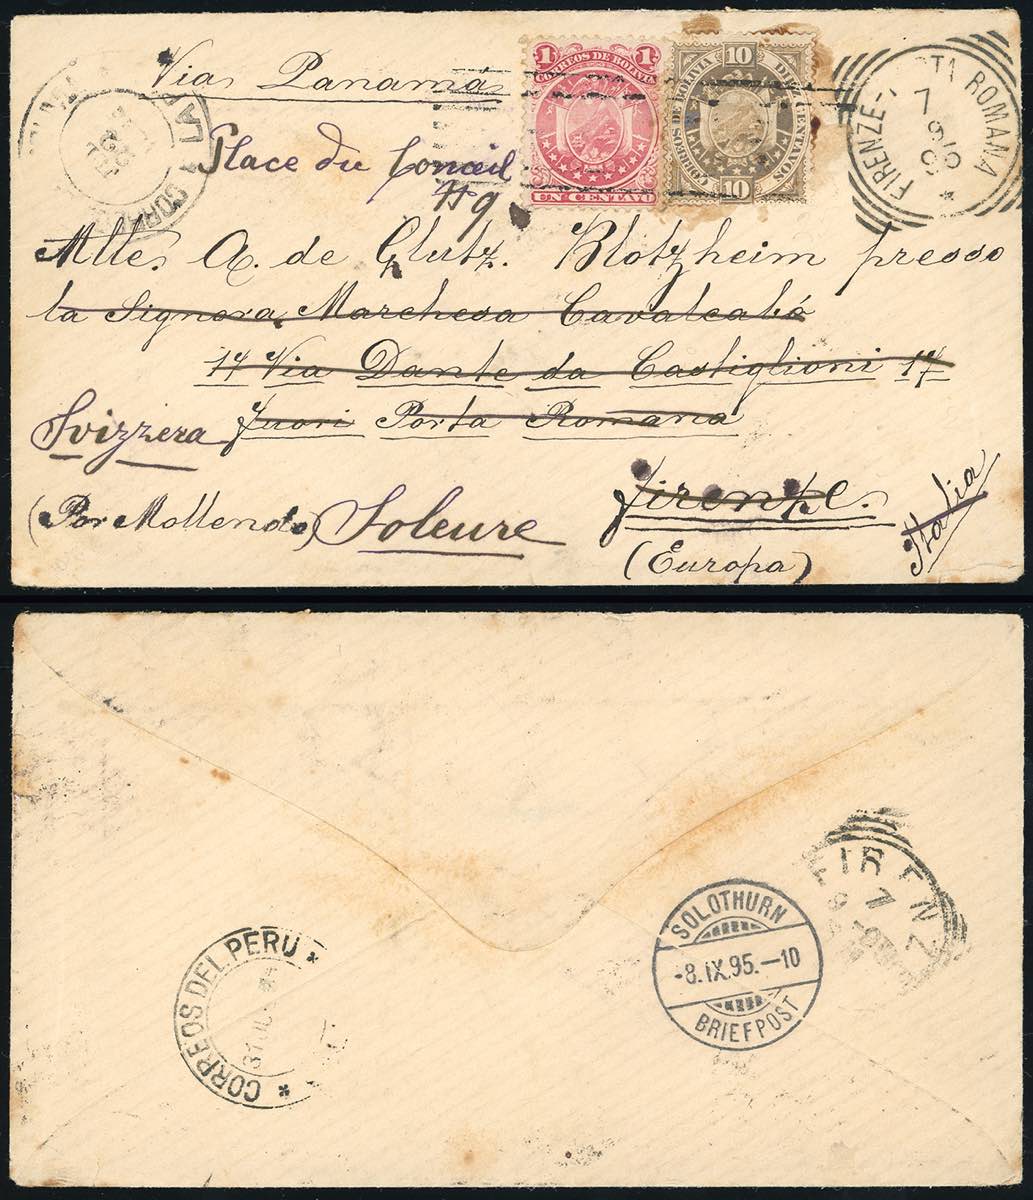 Via Panamá
1 1
CORREOS DE BOLIVIA
UN CENTAVO
10
CORREOS DE BOLIVIA
DIEZ CENTAVOS
10
LA PAZ
FIRENZE
PORTA ROMANA
7
Place du Conseil
Mlle. A. de Glutz. Blotzheim presso
la Signora Marchesa Cavalcabó
17 Via Dante da Castiglioni 17
Svizzera fuori Porta Romana
(Por Mollendo) Soleure Firenze.
(Europa) Italia
CORREOS DEL PERU
31
SOLOTHURN
-8.IX.95.-10
BRIEFPOST
FIRENZ
7